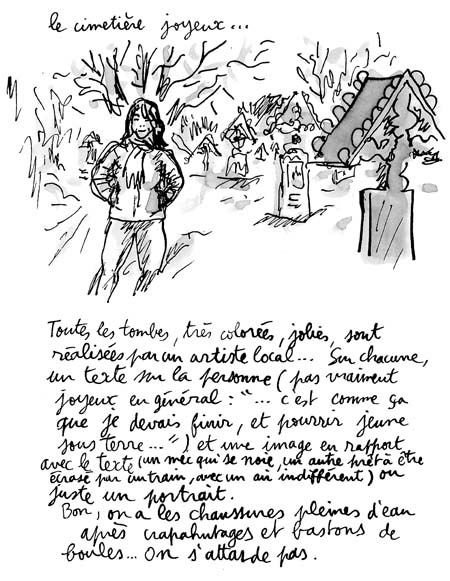 le cimetière joyeux...
Toutes les tombes, très colorées, jolies, sont
réalisées par un artiste local... Sur chacune,
un texte sur la personne (pas vraiment
joyeux en général : "... c'est comme ça
que je devais finir, et pourrir jeune
sous terre...") et une image en rapport
avec le texte (un mec qui se noie, un autre prêt à être
écrasé par un train, avec un air indifférent) ou
juste un portrait.
Bon, on a les chaussures pleines d'eau
après crapahutages et bastons de
boules... On s'attarde pas.